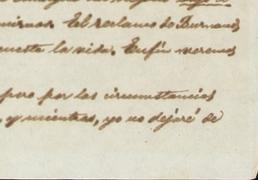 El reclamo de Burmans
cuesta la vida. Enfin veremos
pero por las circunstancias
y mientras, yo no dejaré de